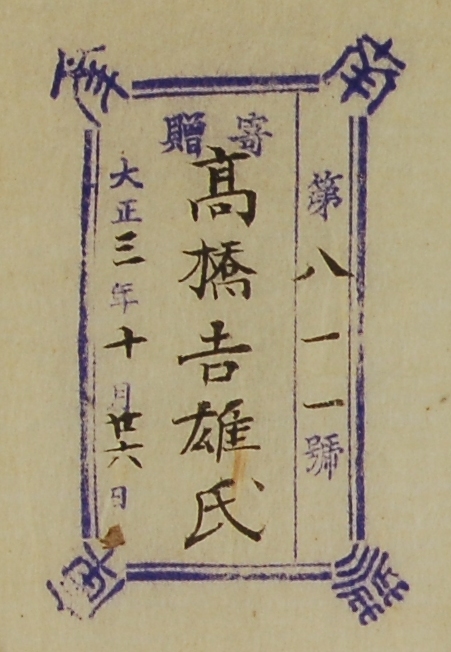 第八一一號
寄贈
髙橋吉雄氏
大正三年十月廿六日